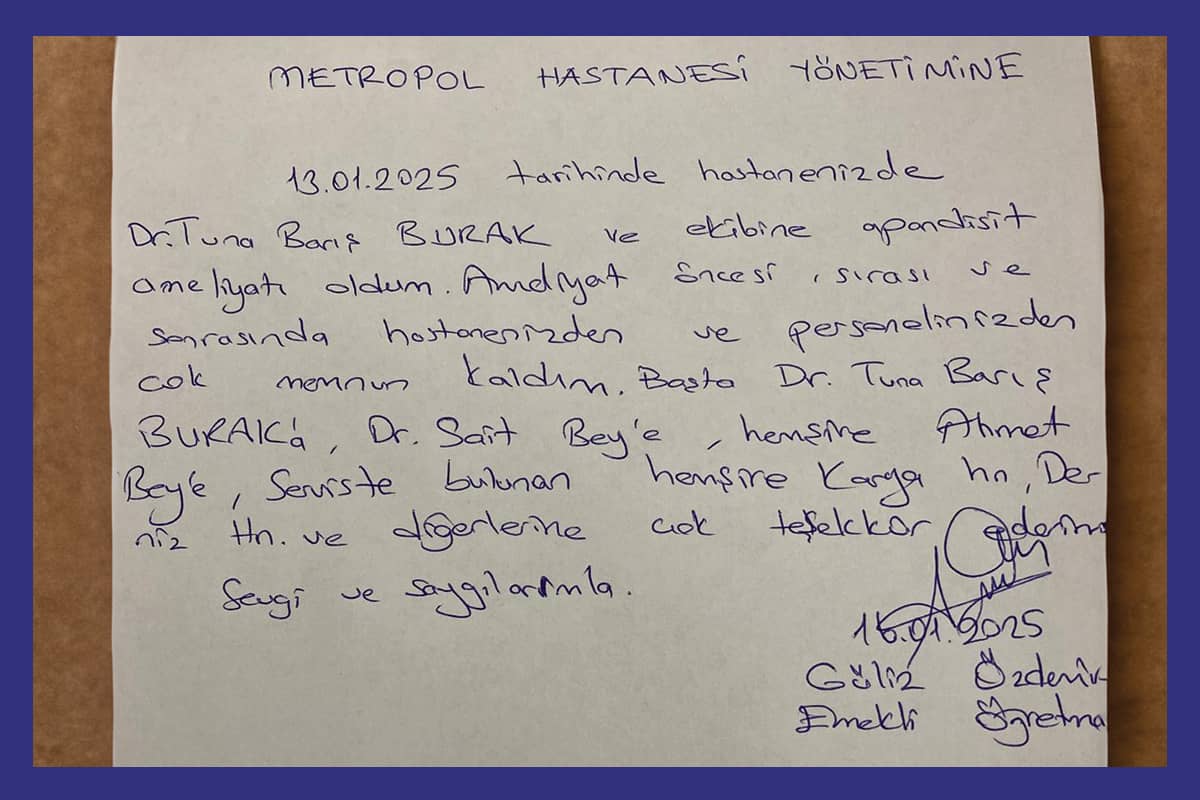 METROPOL HASTANESİ YÖNETİMİNE
13.01.2025 tarihinde hastanenizde
Dr. Tuna Barış BURAK ve ekibine apandisit
ameliyatı oldum. Ameliyat öncesi, sırası ve
sonrasında hastanenizden ve personelinizden
cok memnun kaldım. Başta Dr. Tuna Barış
BURAK'a, Dr. Sait Bey'e, hemşire Ahmet
Bey'e, Serviste bulunan hemşire hn, De-
niz Hn. ve diğerlerine cok teşekkür ederim
Sevgi ve saygılarımla.
.01.2025
Güliz
Emekli